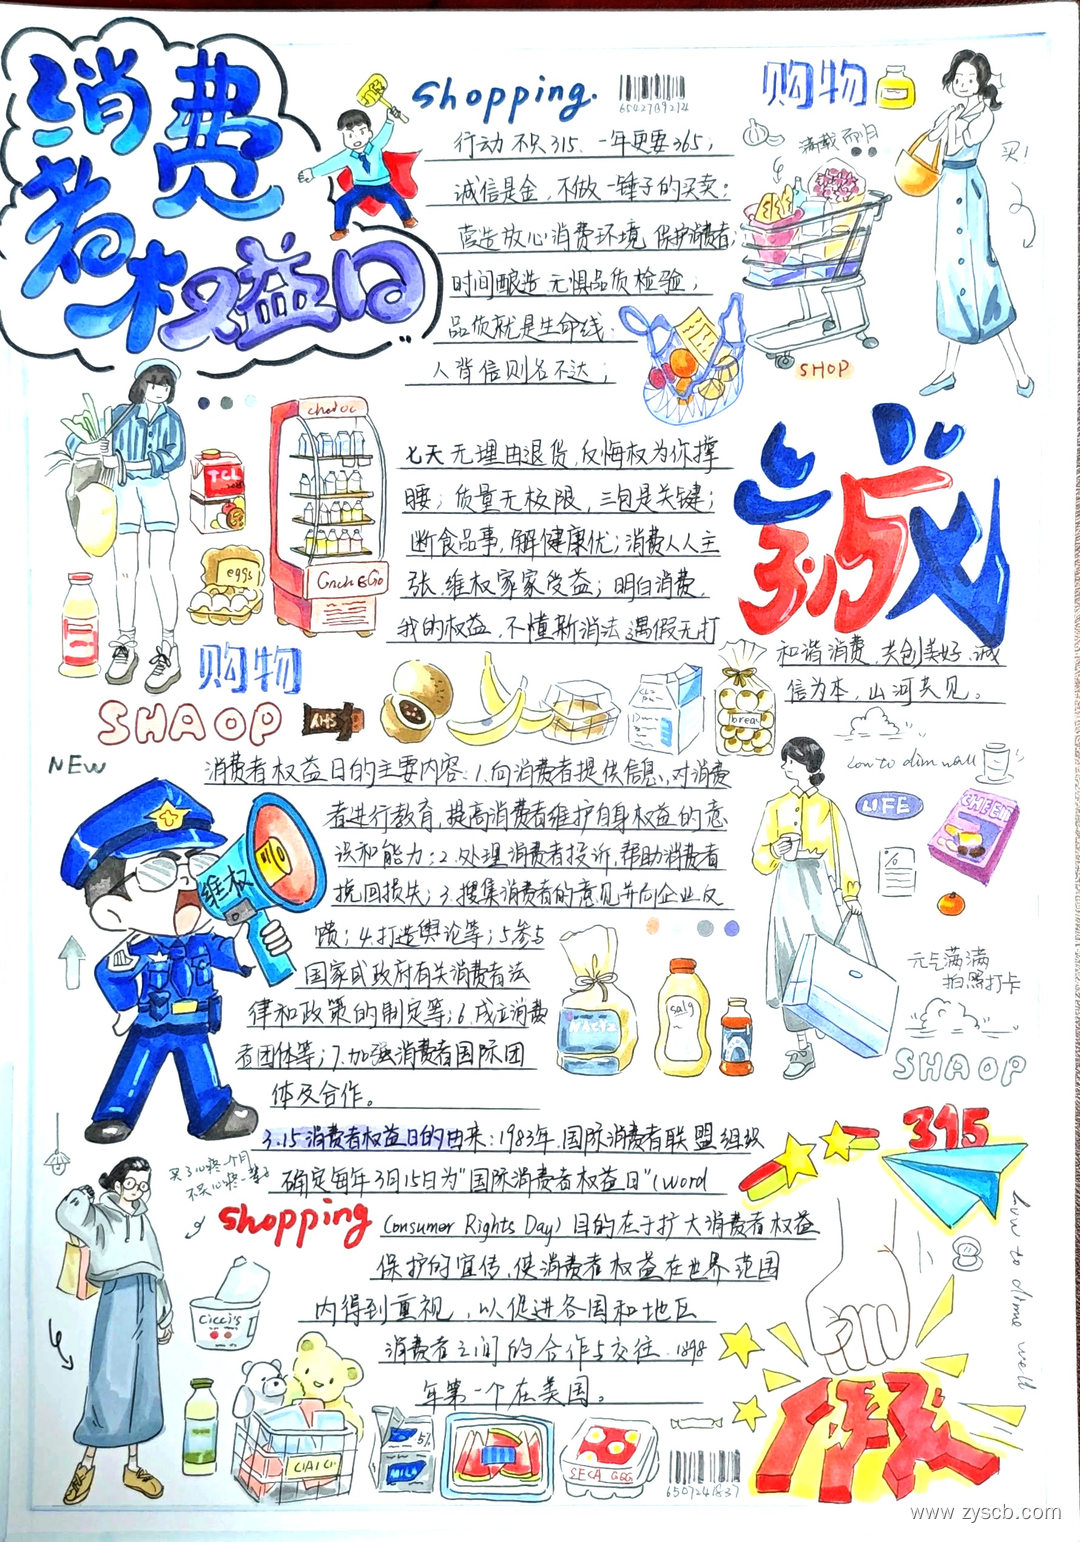 消费
者权益日
shopping.
购物
满载而归
买!
行动不只315、一年更要365;
诚信是金,不做一锤子的买卖;
营造放心消费环境 保护消费者;
时间酿造 无惧品质检验;
品质就是生命线.
人背信则名不达;
SHOP
TCL
eggs
七天无理由退货,反悔权为你撑
腰;质量无极限,三包是关键;
断食品事,解健康优;消费人人主
张.维权家家受益;明白消费,
我的权益,不懂新消法 遇假无打
和谐消费,共创美好.诚
信为本,山河共见。
诚
3.15
购物
SHAOP
bread
NEW
消费者权益日的主要内容:1.向消费者提供信息,对消费
者进行教育,提高消费者维护自身权益的意
识和能力;2.处理消费者投诉,帮助消费者
挽回损失;3.搜集消费者的意见并向企业反
馈;4.打造舆论等;5参与
国家或政府有关消费者法
律和政策的制定等;6.成立消费
者团体等;7.加强消费者国际团
体及合作。
维权
LIFE
元气满满
拍照打卡
SHAOP
3.15消费者权益日的由来:1983年.国际消费者联盟组织
确定每年3月15日为"国际消费者权益日"(Word
Consumer Rights Day)目的在于扩大消费者权益
保护的宣传,使消费者权益在世界范围
内得到重视,以促进各国和地区
消费者之间的合作与交往.1898
年第一个在美国。
shopping
315
Cicci's
MILK
5%
SECA GGG
假
www.zyscb.com